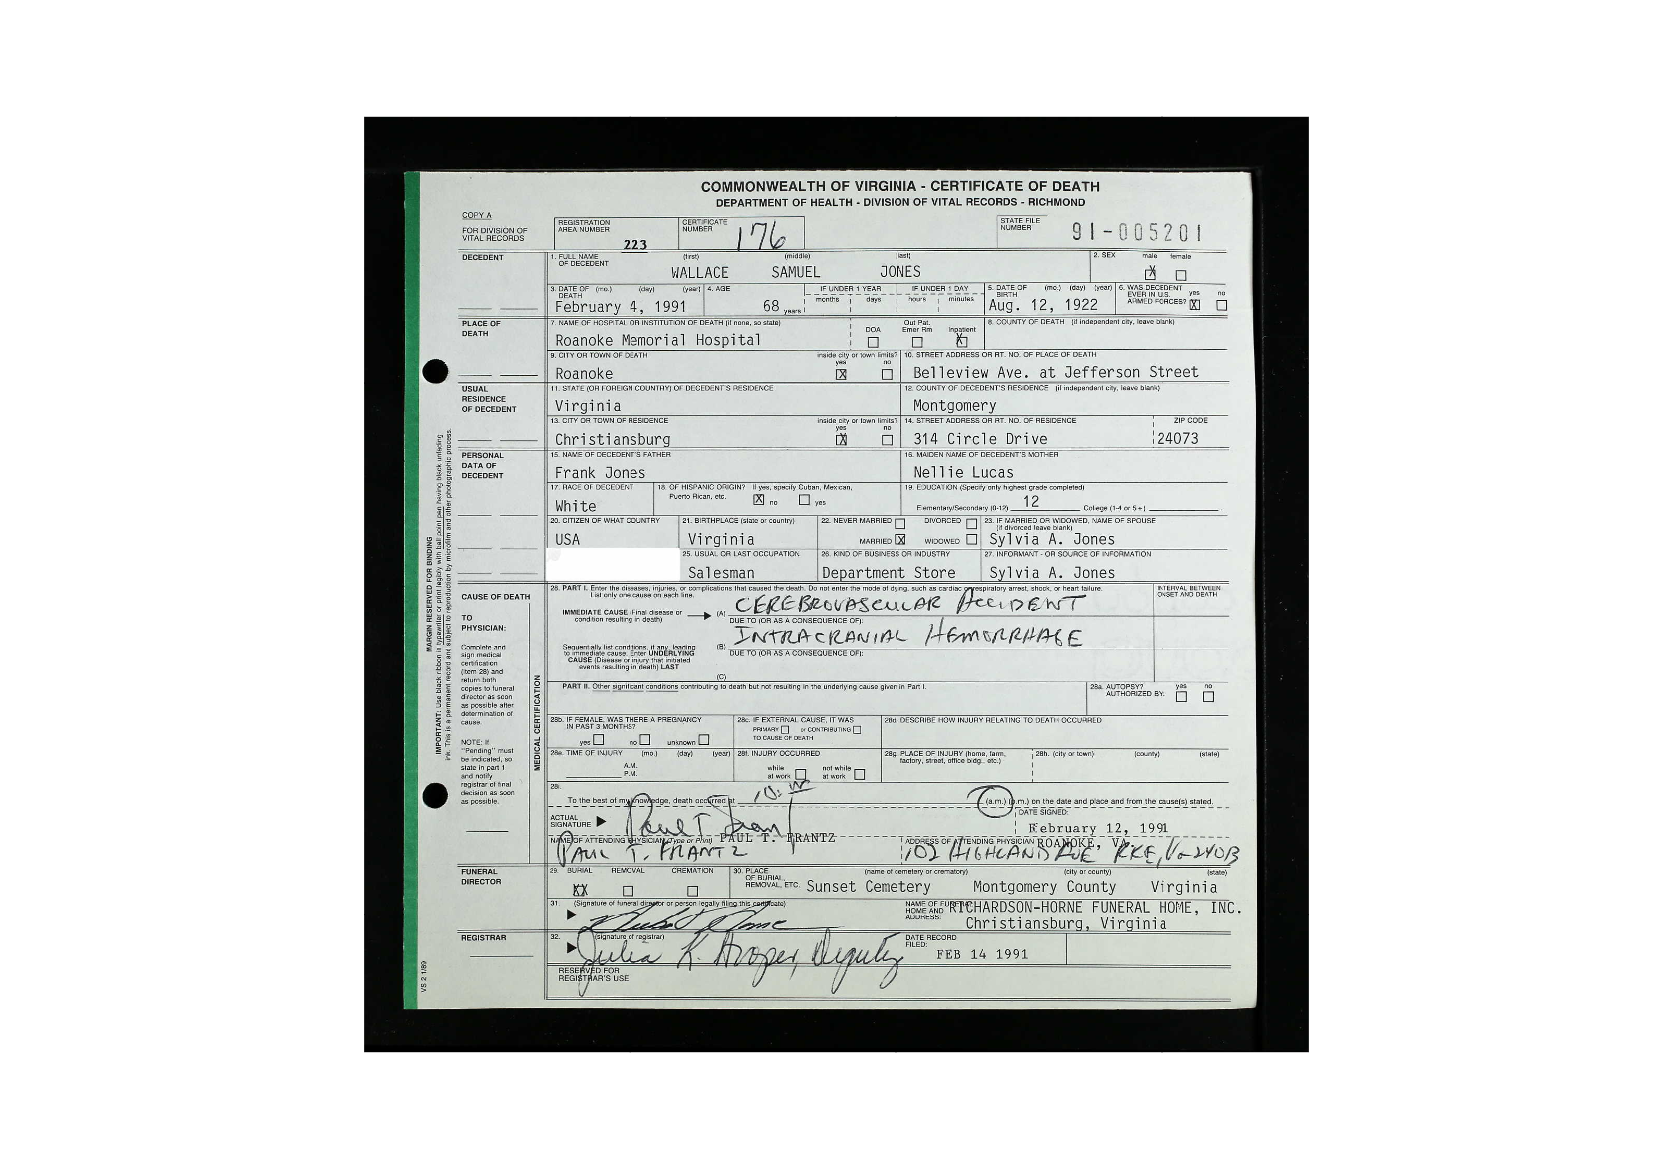 COMMONWEALTH OF VIRGINIA - CERTIFICATE OF DEATH
DEPARTMENT OF HEALTH - DIVISION OF VITAL RECORDS - RICHMOND
COPY A
FOR DIVISION OF VITAL RECORDS
REGISTRATION AREA NUMBER 223
CERTIFICATE NUMBER 176
STATE FILE NUMBER 91-005201
DECEDENT
1. FULL NAME OF DECEDENT (first) (middle) (last)
WALLACE SAMUEL JONES
2. SEX male female
X
3. DATE OF DEATH (mo.) (day) (year)
February 4, 1991
4. AGE 68 years
IF UNDER 1 YEAR months days
IF UNDER 1 DAY hours minutes
5. DATE OF BIRTH (mo.) (day) (year)
Aug. 12, 1922
6. WAS DECEDENT EVER IN U.S. ARMED FORCES? yes no
X
PLACE OF DEATH
7. NAME OF HOSPITAL OR INSTITUTION OF DEATH (if none, so state)
Roanoke Memorial Hospital
DOA Out Pat. Emer Rm Inpatient
X
8. COUNTY OF DEATH (if independent city, leave blank)
9. CITY OR TOWN OF DEATH
Roanoke
inside city or town limits? yes no
X
10. STREET ADDRESS OR RT. NO. OF PLACE OF DEATH
Belleview Ave. at Jefferson Street
USUAL RESIDENCE OF DECEDENT
11. STATE (OR FOREIGN COUNTRY) OF DECEDENT'S RESIDENCE
Virginia
12. COUNTY OF DECEDENT'S RESIDENCE (if independent city, leave blank)
Montgomery
13. CITY OR TOWN OF RESIDENCE
Christiansburg
inside city or town limits? yes no
X
14. STREET ADDRESS OR RT. NO. OF RESIDENCE
314 Circle Drive
ZIP CODE
24073
PERSONAL DATA OF DECEDENT
15. NAME OF DECEDENT'S FATHER
Frank Jones
16. MAIDEN NAME OF DECEDENT'S MOTHER
Nellie Lucas
17. RACE OF DECEDENT
White
18. OF HISPANIC ORIGIN? If yes, specify Cuban, Mexican, Puerto Rican, etc.
X no yes
19. EDUCATION (Specify only highest grade completed)
Elementary/Secondary (0-12) 12 College (1-4 or 5+)
20. CITIZEN OF WHAT COUNTRY
USA
21. BIRTHPLACE (state or country)
Virginia
22. NEVER MARRIED DIVORCED
MARRIED X WIDOWED
23. IF MARRIED OR WIDOWED, NAME OF SPOUSE (if divorced leave blank)
Sylvia A. Jones
25. USUAL OR LAST OCCUPATION
Salesman
26. KIND OF BUSINESS OR INDUSTRY
Department Store
27. INFORMANT - OR SOURCE OF INFORMATION
Sylvia A. Jones
CAUSE OF DEATH
TO PHYSICIAN:
Complete and sign medical certification (item 28) and return both copies to funeral director as soon as possible after determination of cause.
NOTE: If "Pending" must be indicated, so state in part 1 and notify registrar of final decision as soon as possible.
MEDICAL CERTIFICATION
28. PART I. Enter the diseases, injuries, or complications that caused the death. Do not enter the mode of dying, such as cardiac or respiratory arrest, shock, or heart failure.
List only one cause on each line.
INTERVAL BETWEEN ONSET AND DEATH
IMMEDIATE CAUSE (Final disease or condition resulting in death)
(A) CEREBROVASCULAR ACCIDENT
DUE TO (OR AS A CONSEQUENCE OF):
(B) INTRACRANIAL HEMORRHAGE
Sequentially list conditions, if any, leading to immediate cause. Enter UNDERLYING CAUSE (Disease or injury that initiated events resulting in death) LAST
DUE TO (OR AS A CONSEQUENCE OF):
(C)
PART II. Other significant conditions contributing to death but not resulting in the underlying cause given in Part I.
28a. AUTOPSY? AUTHORIZED BY: yes no
28b. IF FEMALE, WAS THERE A PREGNANCY IN PAST 3 MONTHS?
yes no unknown
28c. IF EXTERNAL CAUSE, IT WAS
PRIMARY or CONTRIBUTING
TO CAUSE OF DEATH
28d. DESCRIBE HOW INJURY RELATING TO DEATH OCCURRED
28e. TIME OF INJURY (mo.) (day) (year)
A.M.
P.M.
28f. INJURY OCCURRED
while at work not while at work
28g. PLACE OF INJURY (home, farm, factory, street, office bldg., etc.)
28h. (city or town) (county) (state)
28i.
To the best of my knowledge, death occurred at (a.m.) (p.m.) on the date and place and from the cause(s) stated.
ACTUAL SIGNATURE
DATE SIGNED:
February 12, 1991
NAME OF ATTENDING PHYSICIAN (Type or Print) PAUL T. FRANTZ
PAUL T. FRANTZ
ADDRESS OF ATTENDING PHYSICIAN ROANOKE, VA
102 HIGHLAND AVE RKE, Va 24013
FUNERAL DIRECTOR
29. BURIAL REMOVAL CREMATION
XX
30. PLACE OF BURIAL, REMOVAL, ETC. (name of cemetery or crematory) (city or county) (state)
Sunset Cemetery Montgomery County Virginia
31. (Signature of funeral director or person legally filing this certificate)
NAME OF FUNERAL HOME AND ADDRESS: RICHARDSON-HORNE FUNERAL HOME, INC.
Christiansburg, Virginia
REGISTRAR
32. (signature of registrar)
Julia K. Hooper, Deputy
DATE RECORD FILED:
FEB 14 1991
RESERVED FOR REGISTRAR'S USE
MARGIN RESERVED FOR BINDING
IMPORTANT: Use black ribbon in typewriter or print legibly with ball point pen having black unfading ink. This is a permanent record and subject to reproduction by microfilm and other photographic process.
VS 2 1/89